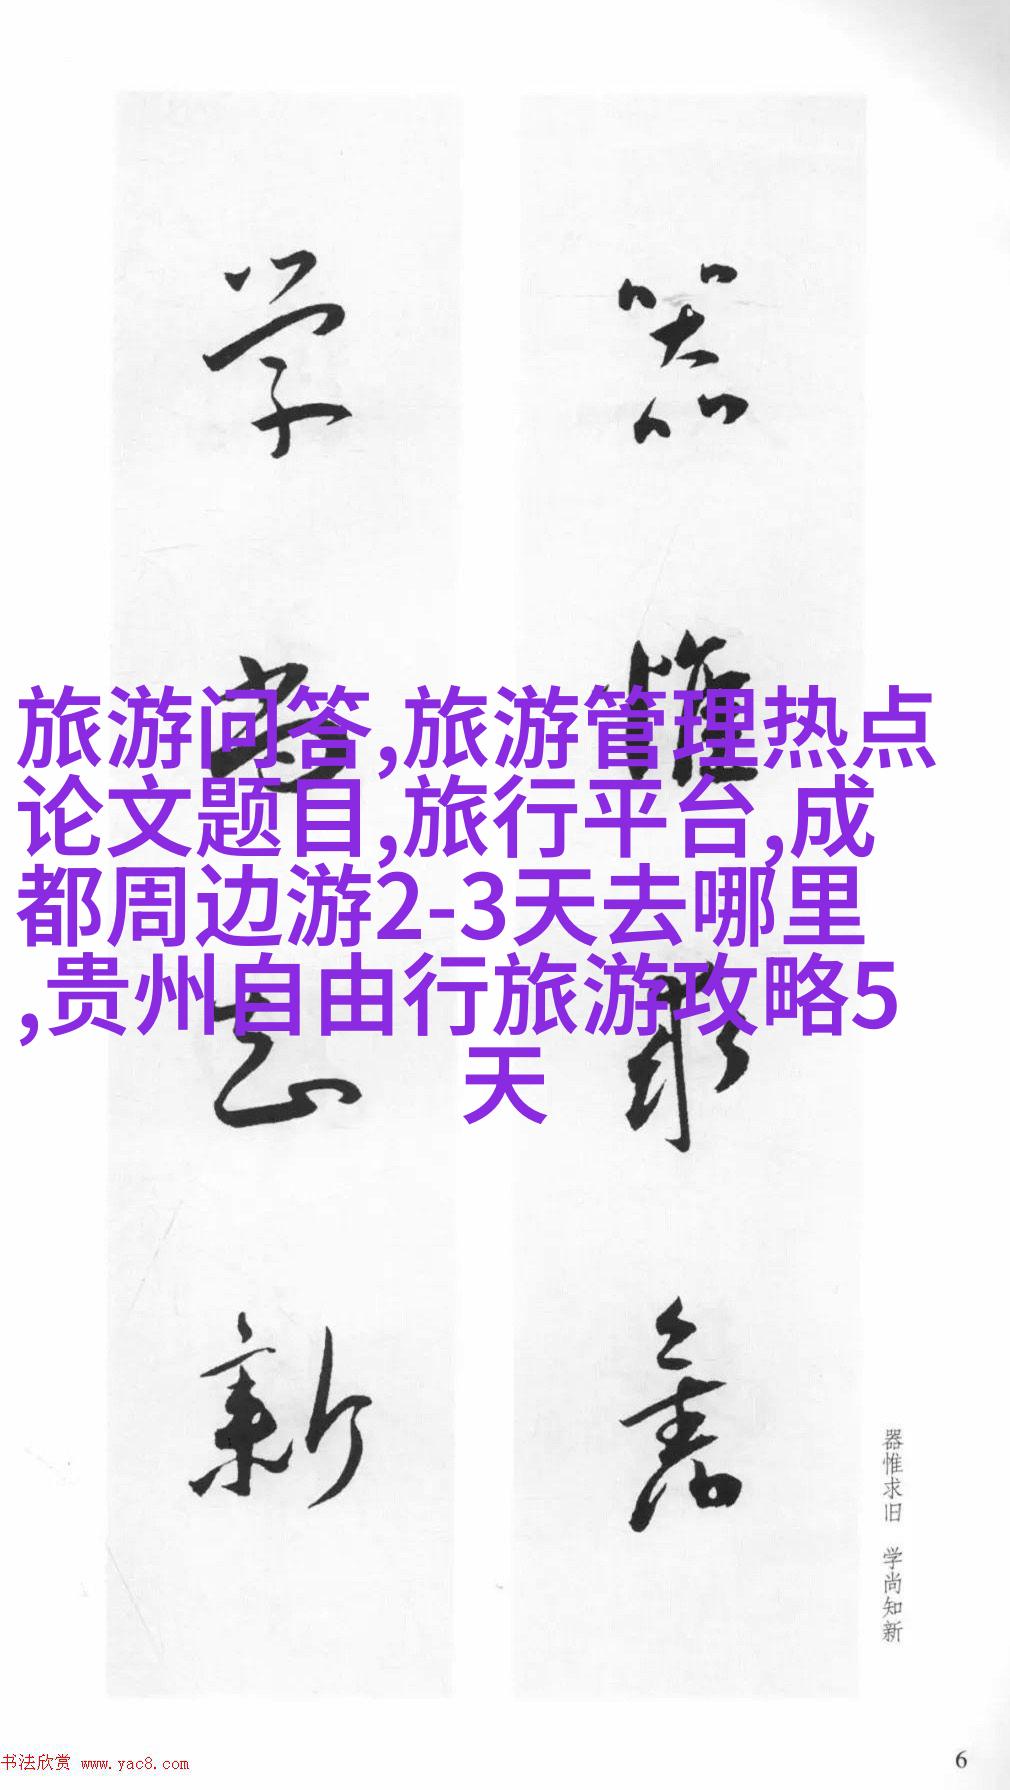 器惟求舊
学尚知新
旅游问答,旅游管理热点
论文题目,旅行平台,成
都周边游2-3天去哪里
,贵州自由行旅游攻略5
天
器惟求旧 学尚知新
书法欣赏 www.yac8.com
6